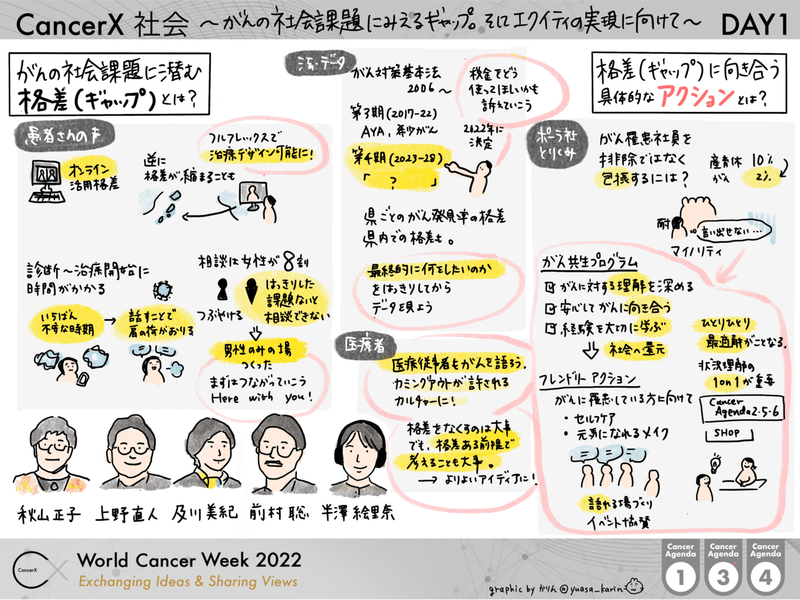 CancerX 社会 〜がんの社会課題にみえるギャップ。そしてエクイティの実現に向けて〜 DAY1
がんの社会課題に潜む
格差(ギャップ)とは?
患者さんの声
オンライン
活用格差
逆に
格差が縮まることも
フルフレックスで
治療デザイン可能に!
診断〜治療開始に
時間がかかる
いちばん
不安な時期
話すことで
肩の荷がおりる
相談は女性が8割
つぶやける
はっきりした
課題ないと
相談できない
男性のみの場
つくった
まずはつながっていこう
Here with you!
秋山正子
上野直人
及川美紀
前村聡
半澤絵里奈
法・データ
がん対策基本法
2006〜
第3期(2017-22)
AYA、希少がん
第4期(2023-28)
「 ? 」
税金でどう
使ってほしいかも
訴えていこう
2022年に
決定
県ごとのがん発見率の格差
県内での格差も。
最終的に何をしたいのか
をはっきりしてから
データを見よう
医療者
医療従事者もがんを語ろう。
カミングアウトが許される
カルチャーに!
格差をなくすのは大事
でも、格差ある前提で
考えることも大事。
→よりよいアイディアに!
格差(ギャップ)に向き合う
具体的なアクションとは?
ポーラ社
とりくみ
がん罹患社員を
排除ではなく
包摂するには?
産育休 10%
がん 2%
耐
言い出せない…
マイノリティ
がん共生プログラム
がんに対する理解を深める
安心してがんに向き合う
経験を大切に学ぶ
社会へ還元
フレンドリーアクション
がんに罹患している方に向けて
・セルフケア
・元気になれるメイク
語れる場づくり
イベント協賛
ひとりひとり
最適解がことなる。
状況理解の
1on1が重要
Cancer
Agenda2.5.6
SHOP
CancerX
World Cancer Week 2022
Exchanging Ideas & Sharing Views
graphic by かりん@yuasa_karin
Cancer
Agenda
1
Cancer
Agenda
3
Cancer
Agenda
4